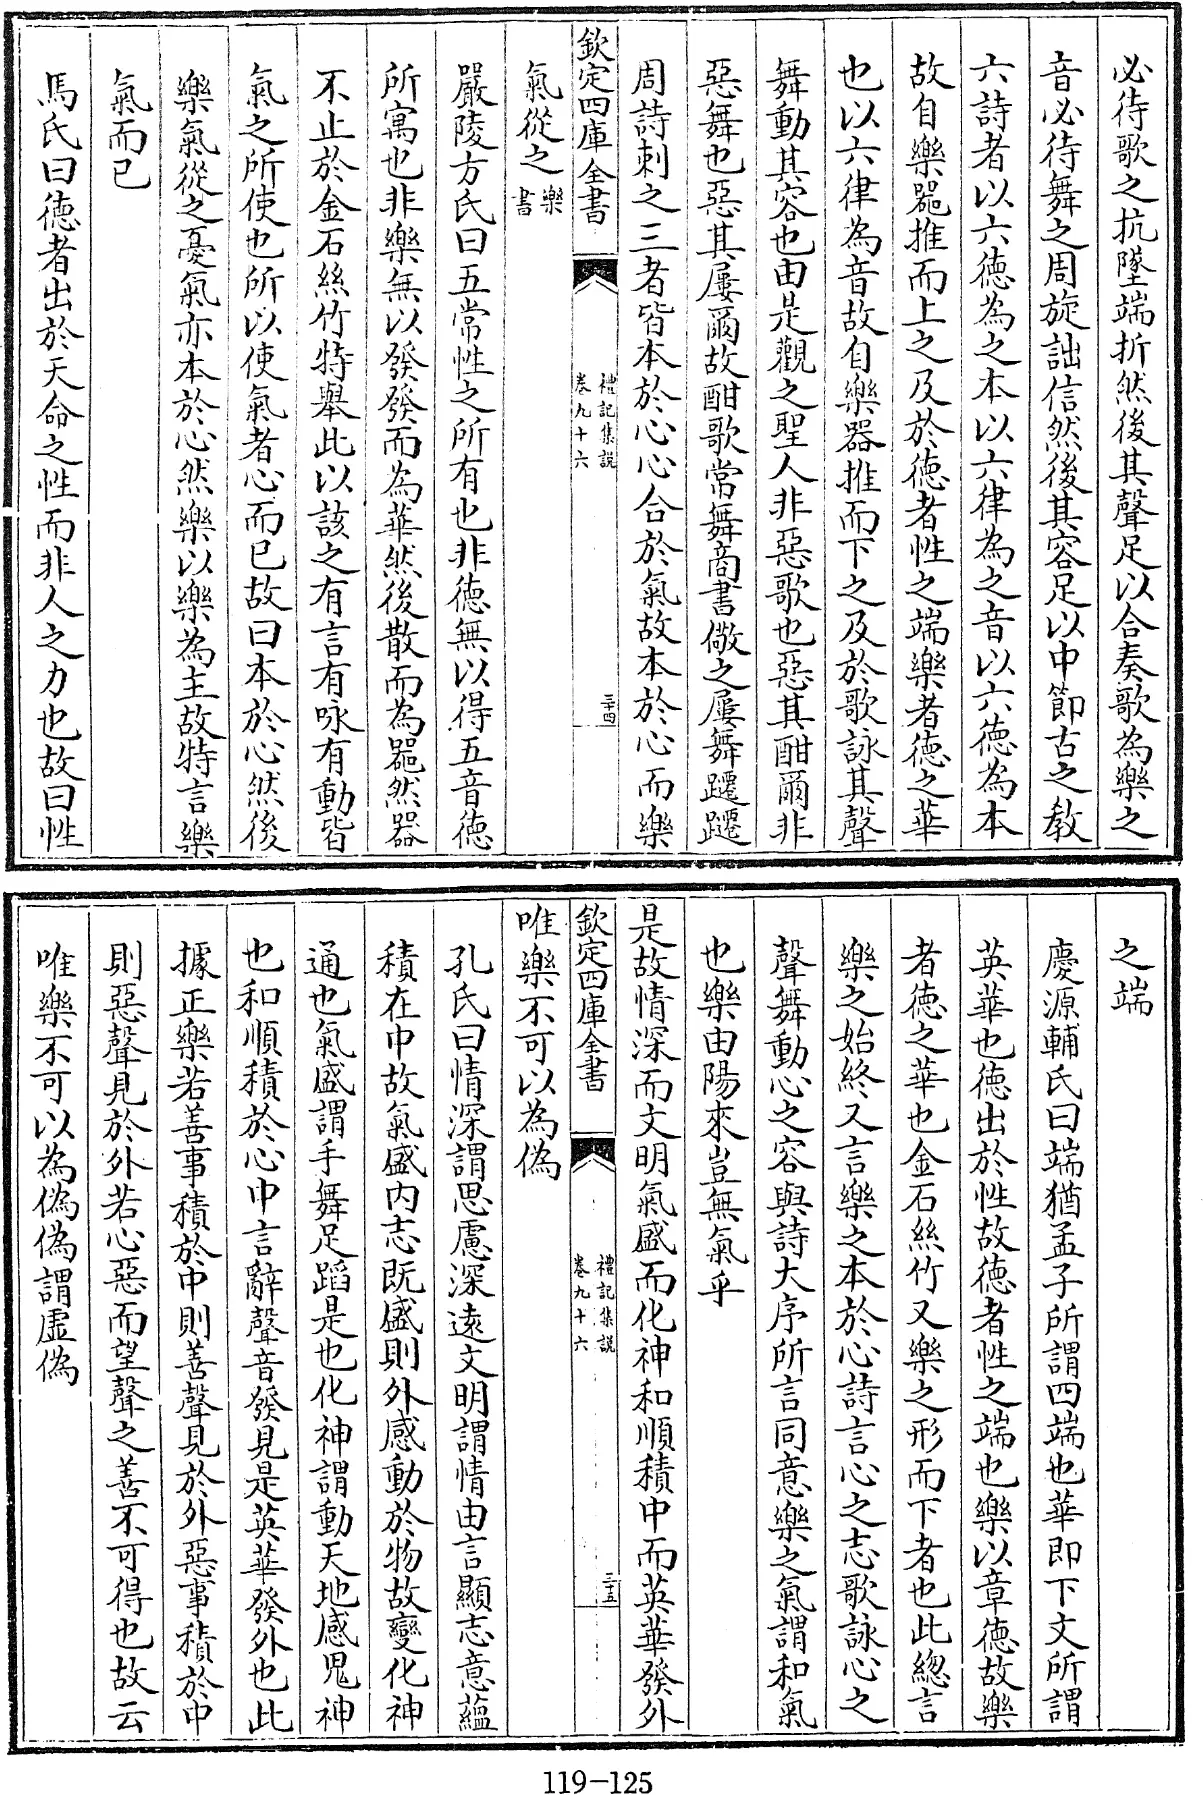 必待歌之抗墜端折然後其聲足以合奏歌為樂之
音必待舞之周旋詘信然後其容足以中節古之教
六詩者以六徳為之本以六律為之音以六徳為本
故自樂噐推而上之及於徳者性之端樂者徳之華
也以六律為音故自樂器推而下之及於歌詠其聲
舞動其容也由是觀之聖人非惡歌也惡其酣爾非
惡舞也惡其屢爾故酣歌常舞商書儆之屢舞躚躚
周詩刺之三者皆本於心心合於氣故本於心而樂
欽定四庫全書
禮記集説
卷九十六
三十四
氣從之樂書
嚴陵方氏曰五常性之所有也非徳無以得五音徳
所寓也非樂無以發發而為華然後散而為噐然器
不止於金石絲竹特舉此以該之有言有咏有動皆
氣之所使也所以使氣者心而已故曰本於心然後
樂氣從之憂氣亦本於心然樂以樂為主故特言樂
氣而已
馬氏曰徳者出於天命之性而非人之力也故曰性
之端
慶源輔氏曰端猶孟子所謂四端也華即下文所謂
英華也徳出於性故徳者性之端也樂以章徳故樂
者徳之華也金石絲竹又樂之形而下者也此總言
樂之始終又言樂之本於心詩言心之志歌詠心之
聲舞動心之容與詩大序所言同意樂之氣謂和氣
也樂由陽來豈無氣乎
是故情深而文明氣盛而化神和順積中而英華發外
欽定四庫全書
禮記集説
卷九十六
三十五
唯樂不可以為偽
孔氏曰情深謂思慮深逺文明謂情由言顯志意蘊
積在中故氣盛内志既盛則外感動於物故變化神
通也氣盛謂手舞足蹈是也化神謂動天地感鬼神
也和順積於心中言辭聲音發見是英華發外也此
據正樂若善事積於中則善聲見於外惡事積於中
則惡聲見於外若心惡而望聲之善不可得也故云
唯樂不可以為偽偽謂虚偽
119-125